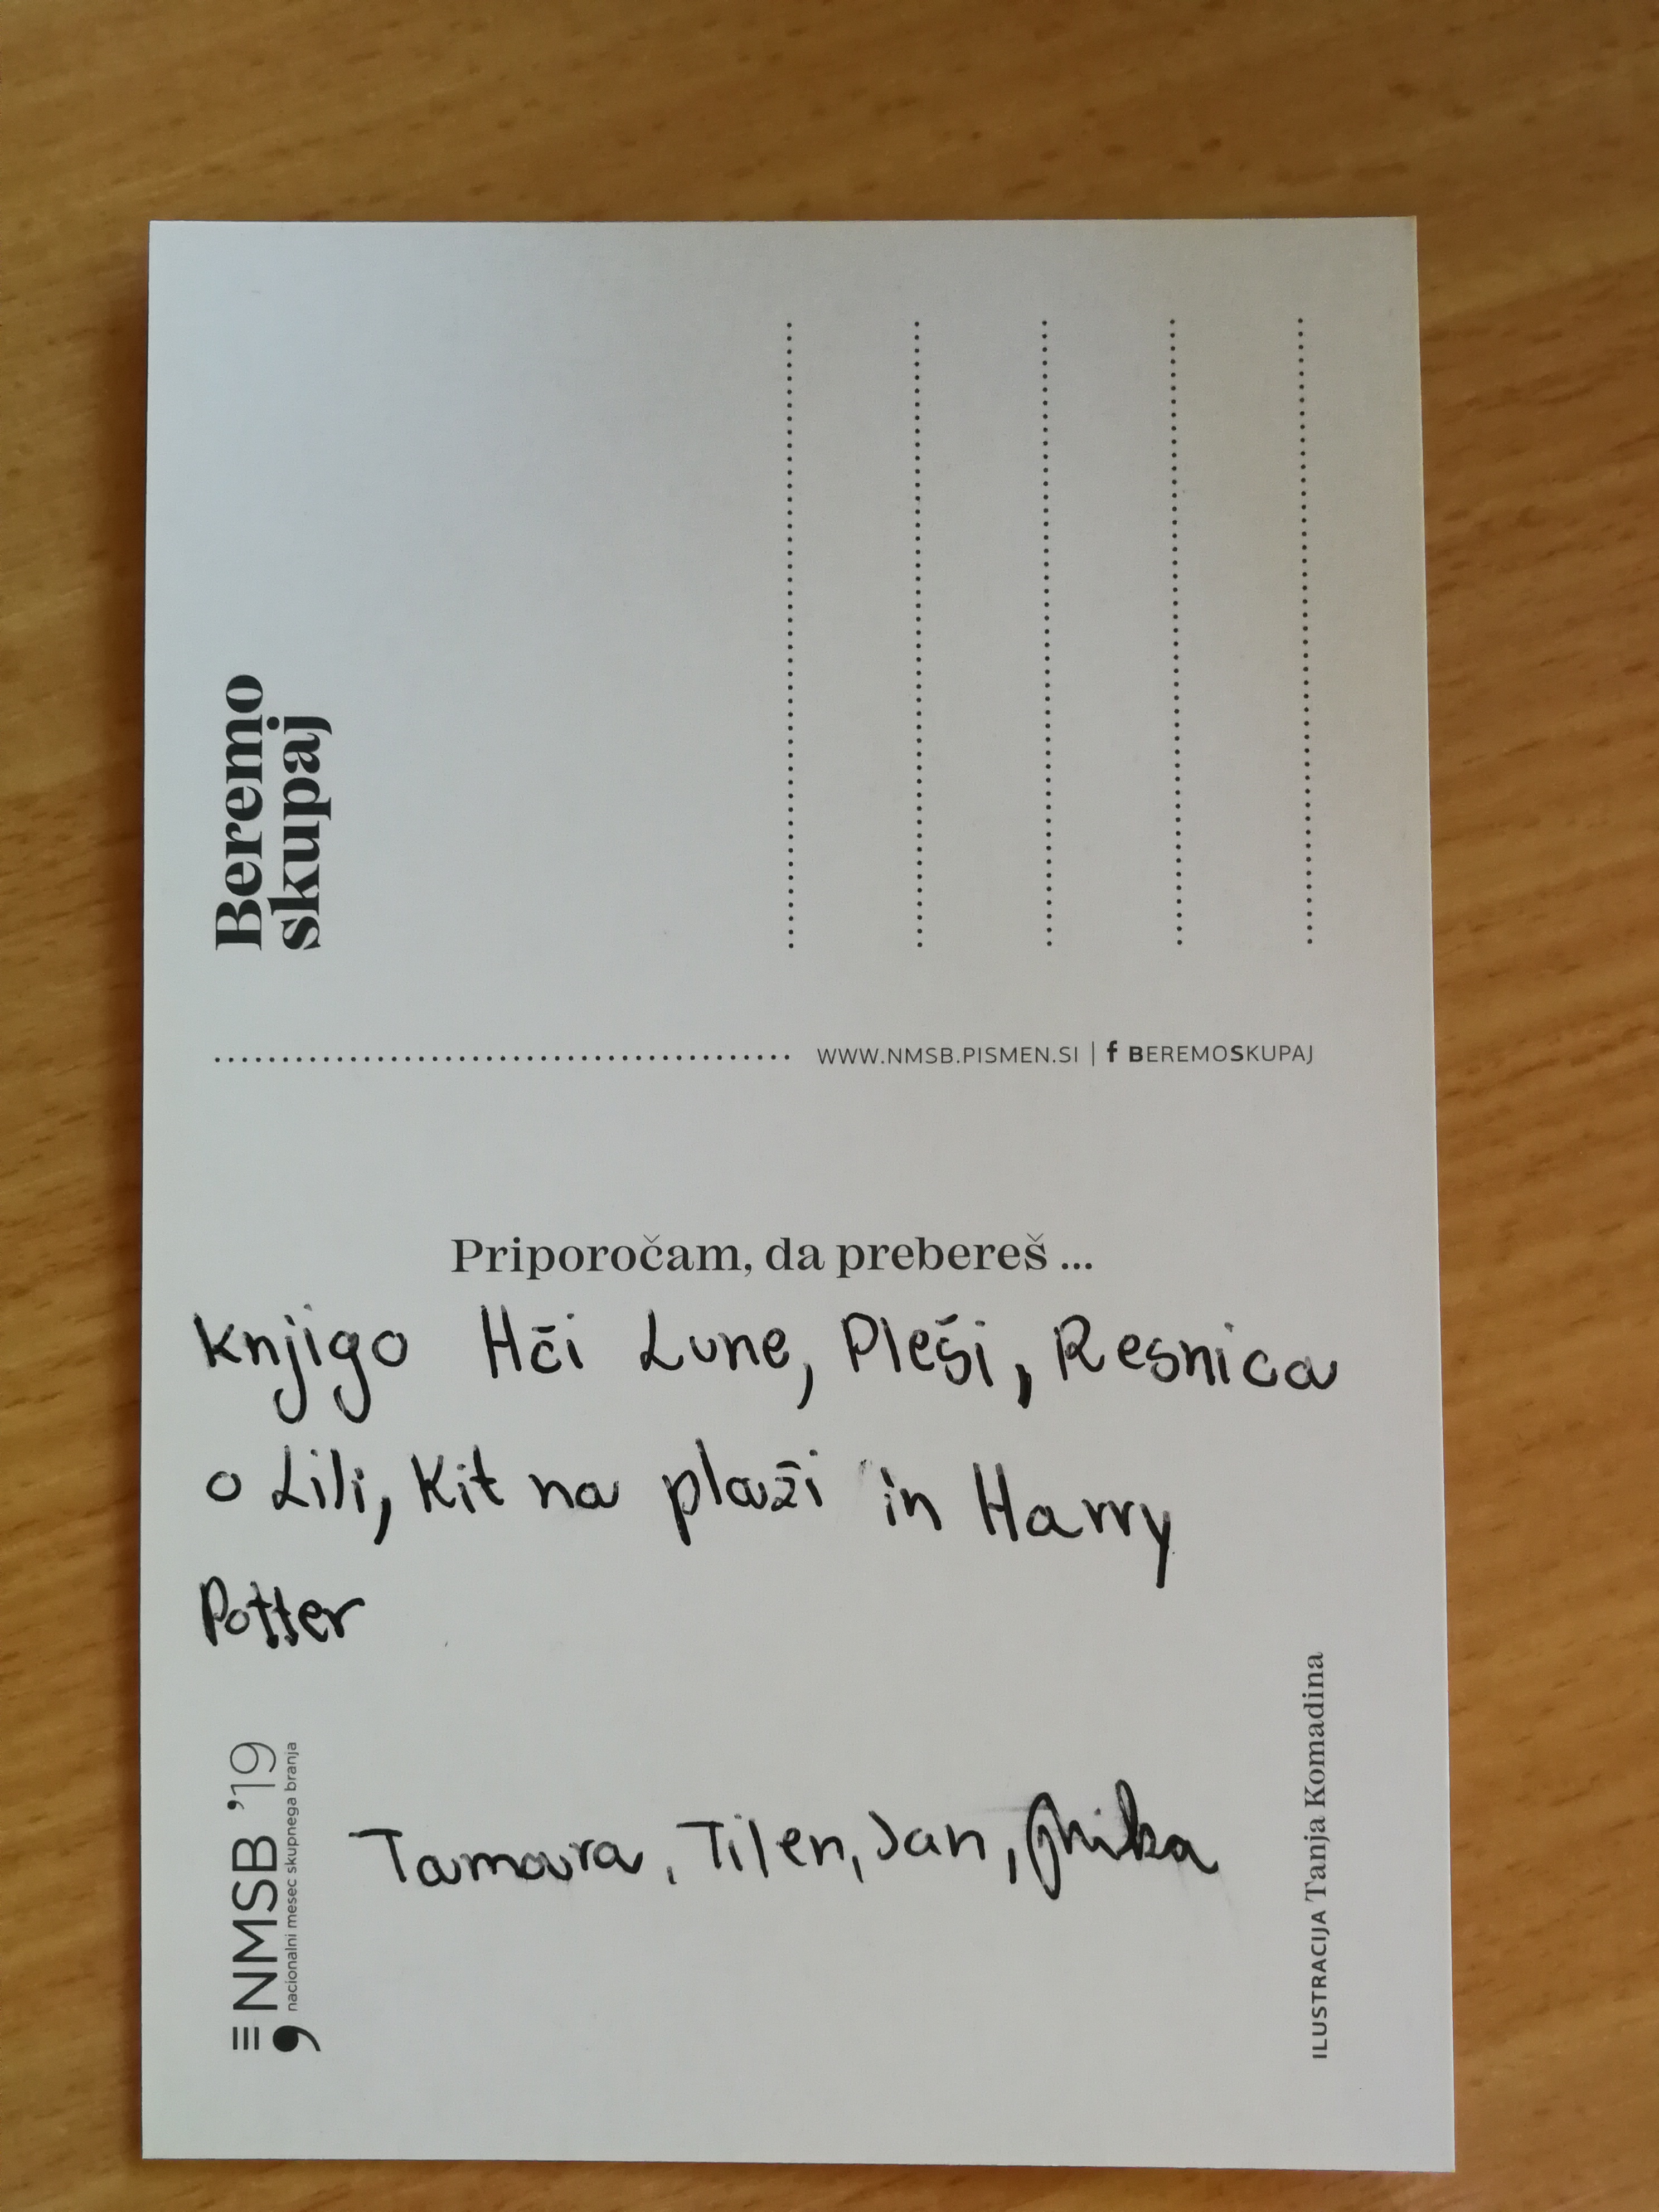 Beremo
skupaj
WWW.NMSB.PISMEN.SI | f BEREMOSKUPAJ
Priporočam, da prebereš ...
knjigo Hči Lune, Pleši, Resnica
o Lili, Kit na plaži in Harry
Potter
NMSB '19
nacionalni mesec skupnega branja
Tamara, Tilen, Jan,
ILUSTRACIJA Tanja Komadina